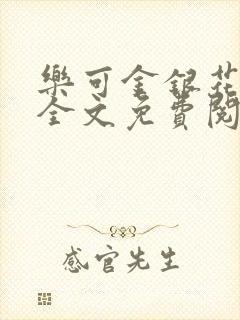 樂可金銀花
全文免費閱
感官先生